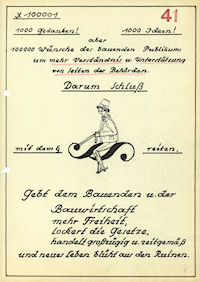 X-100001
41
1000 Gedanken! 1000 Ideen!
aber
100000 Wünsche des bauenden Publikums
um mehr Verständnis u. Unterstützung
von seiten der Behörden.
Darum Schluß
mit dem § reiten,
Gebt dem Bauenden u. der
Bauwirtschaft
mehr Freiheit,
lockert die Gesetze,
handelt großzügig u. zeitgemäß
und neues Leben blüht aus den Ruinen.